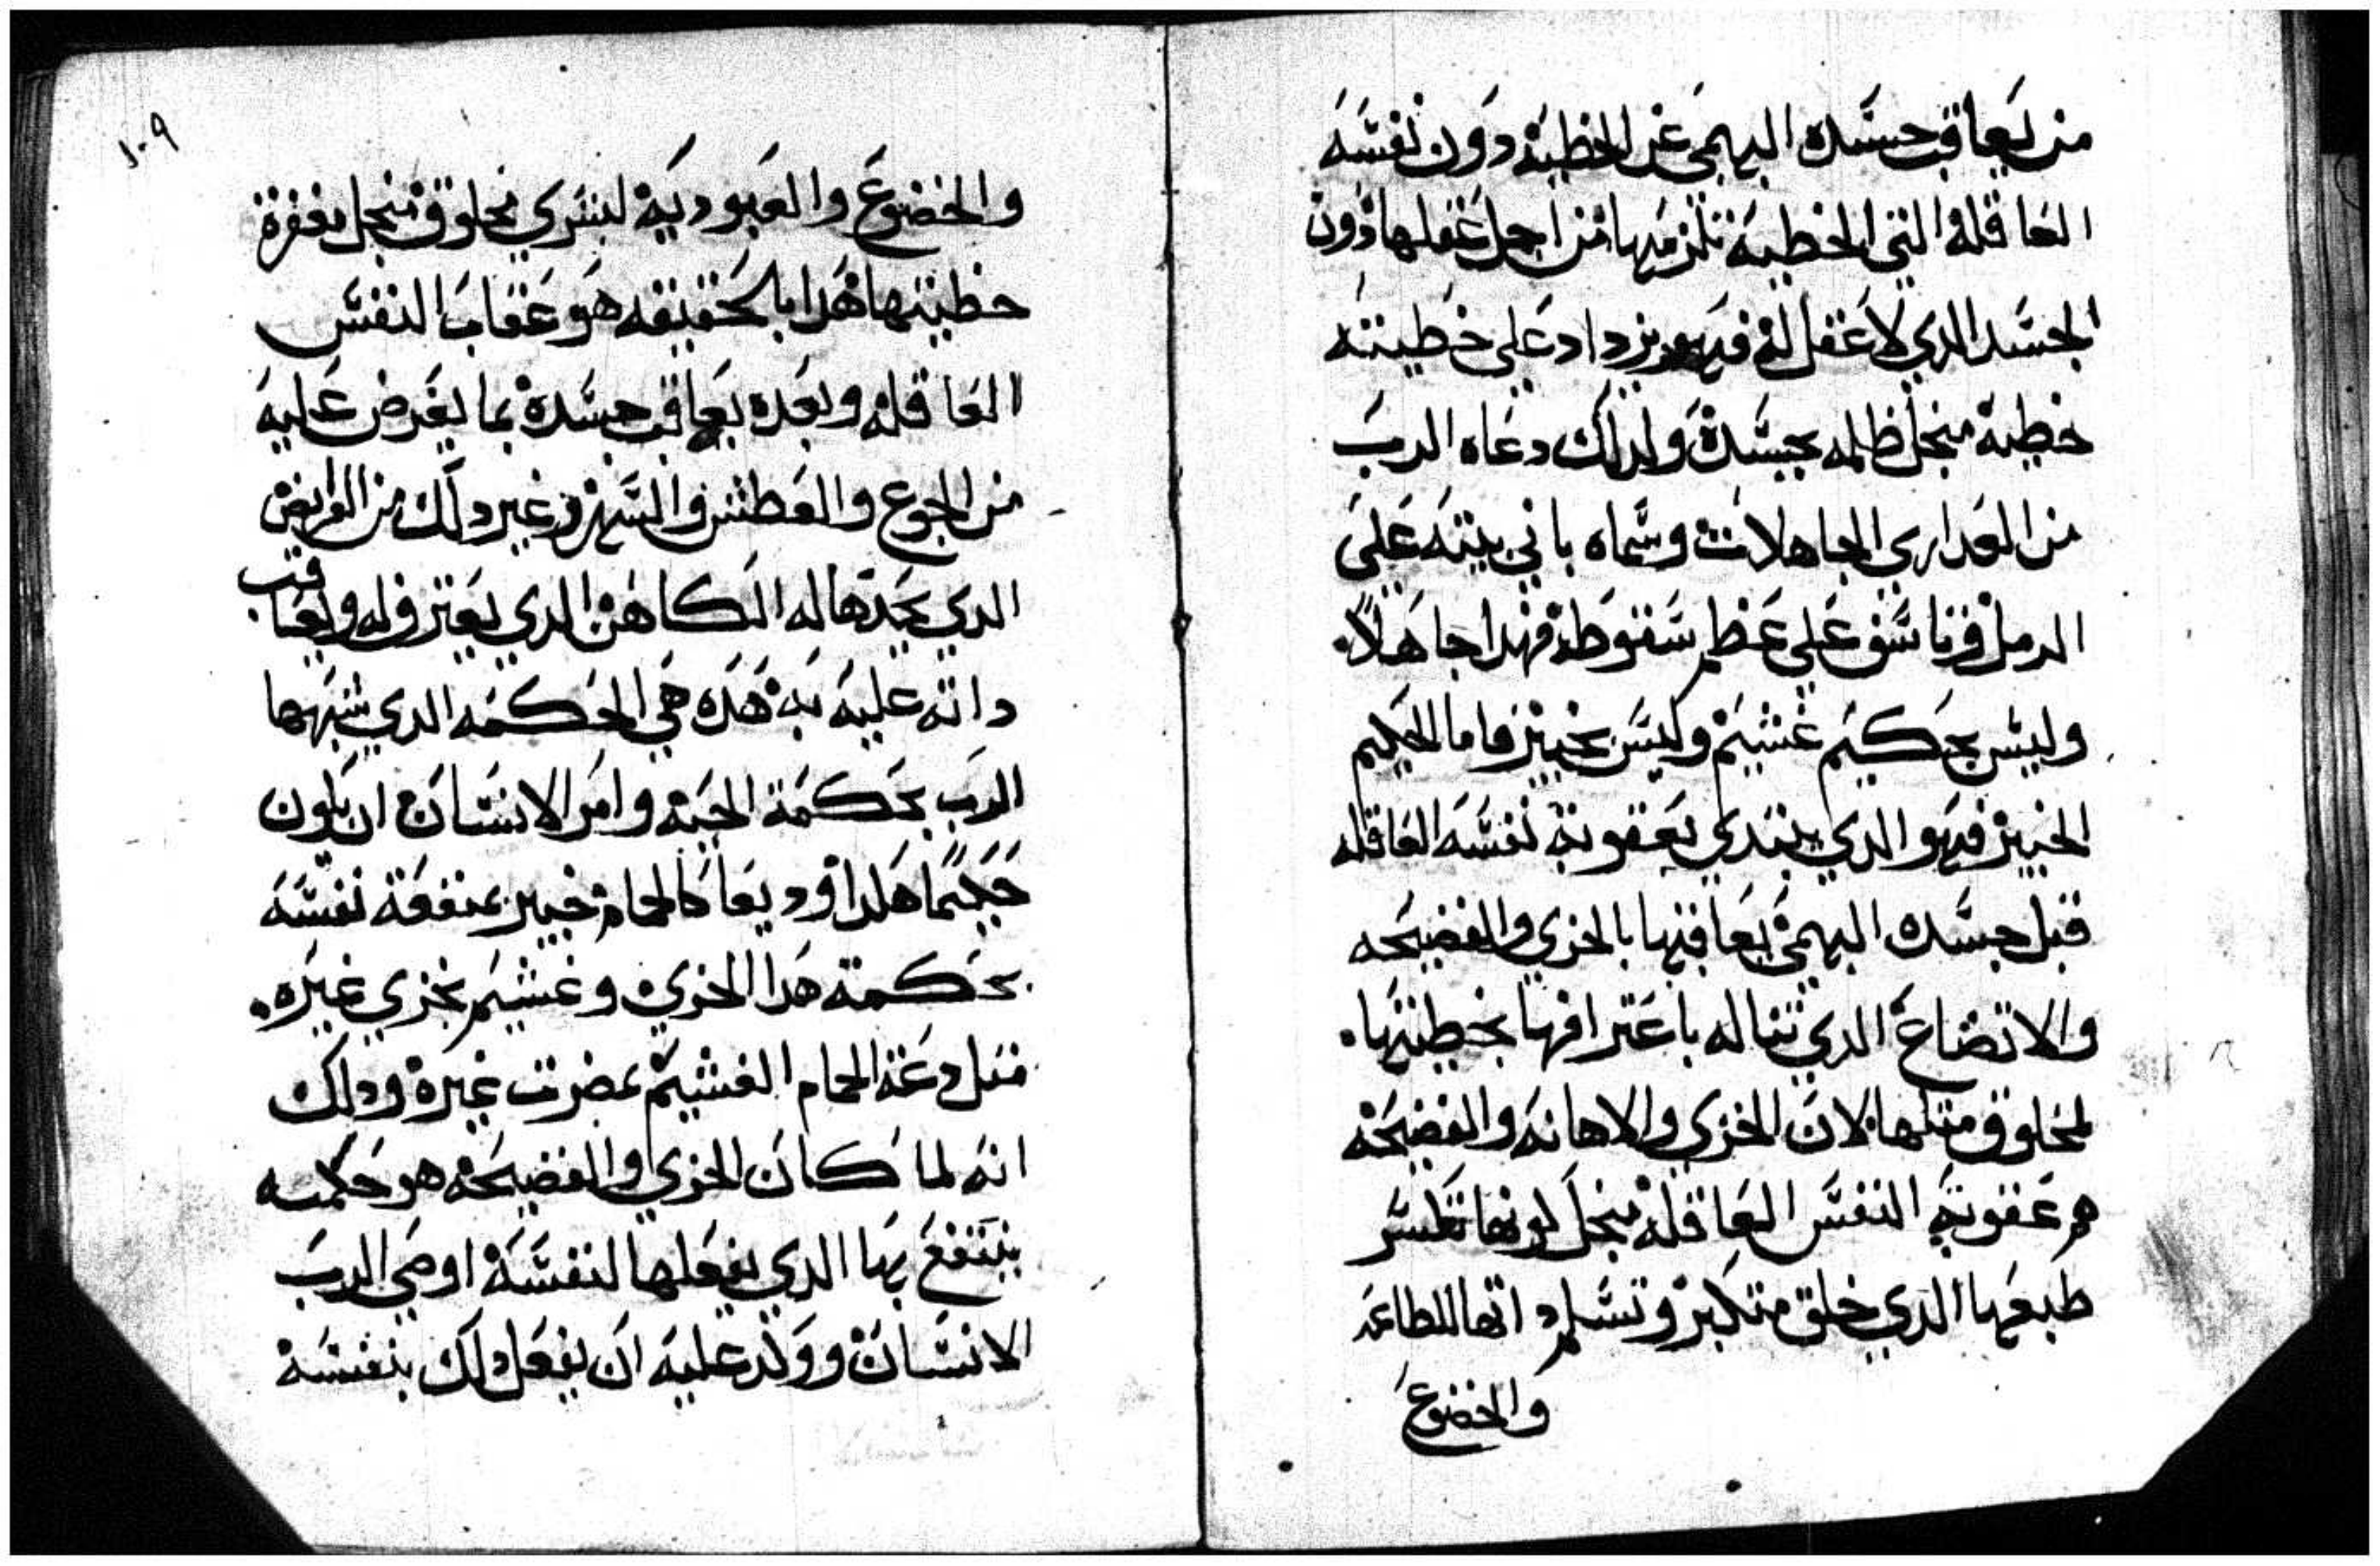 من يعاقب جسده البهمي عن الخطية دون نفسه
العاقله التي الخطية تلزمها من اجل عقلها دون
الجسد الدي لا عقل له فهو يزداد على خطيته
خطية منجل ظلمه بجسده ولدلك دعاه الرب
من العداري الجاهلات وسماه باني بيته على
الرمل وتاسف على عظم سقوطه فهدا جاهلاً.
وليس بحكيم غشيم وليس بخبير واما الحكيم
الخبير فهو الدي يبتدي بعقوبة نفسه العاقله
قبل جسده البهمي يعاقبها بالخزي والفضيحه
والاتضاع الدي تناله باعترافها بخطيتها.
لمخلوق متلها لان الخزي والاهانه والفضيحه
هم عقوبة النفس العاقله منجل لونها تكسر
طبعها الدي خلق متكبر وتسلم داتها للطاعه
والخضوع
١٠٩
والخضوع والعبوديه لبشري مخلوق منجل مغفرة
خطيتها هدا بالحقيقه هو عقاب النفس
العاقله وبعده يعاقب جسده بما يفرض عليه
من الجوع والعطش والسهر وغير دلك من الفرايض
الدي يحدها له الكاهن الدي يعترف له ويعاقب
داته عليه به هده هي الحكمه الدي شبهها
الرب بحكمة الحيه وامر الانسان ان يكون
حكيمًا هكدا ووديعا كالحمام خبير بمنفعة نفسه
بحكمة هدا الخزي وغشيم بخزي غيره.
متل دعة الحمام الغشيم بمضرت غيره ودلك
انه لما كان الخزي والفضيحه هو حكمه
ينتفع بها الدي يفعلها لنفسه اوصي الرب
الانسان ووكد عليه ان يفعل دلك بنفسه